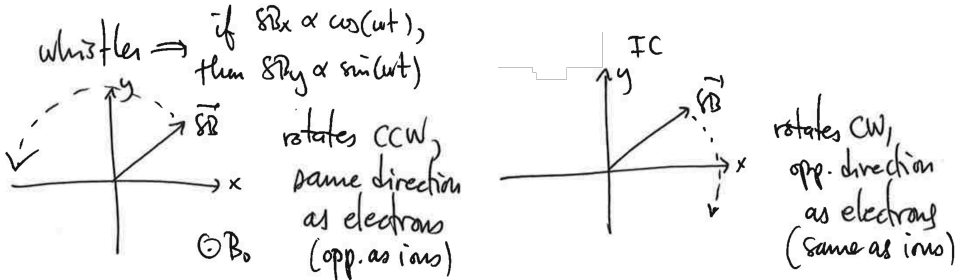 whistler ⇒ if δBx ∝ cos(ωt),
then δBy ∝ sin(ωt)
y
δB⃗
x
⊙B₀
rotates CCW,
same direction
as electrons
(opp. as ions)
IC
y
δB⃗
x
rotates CW,
opp. direction
as electrons
(same as ions)